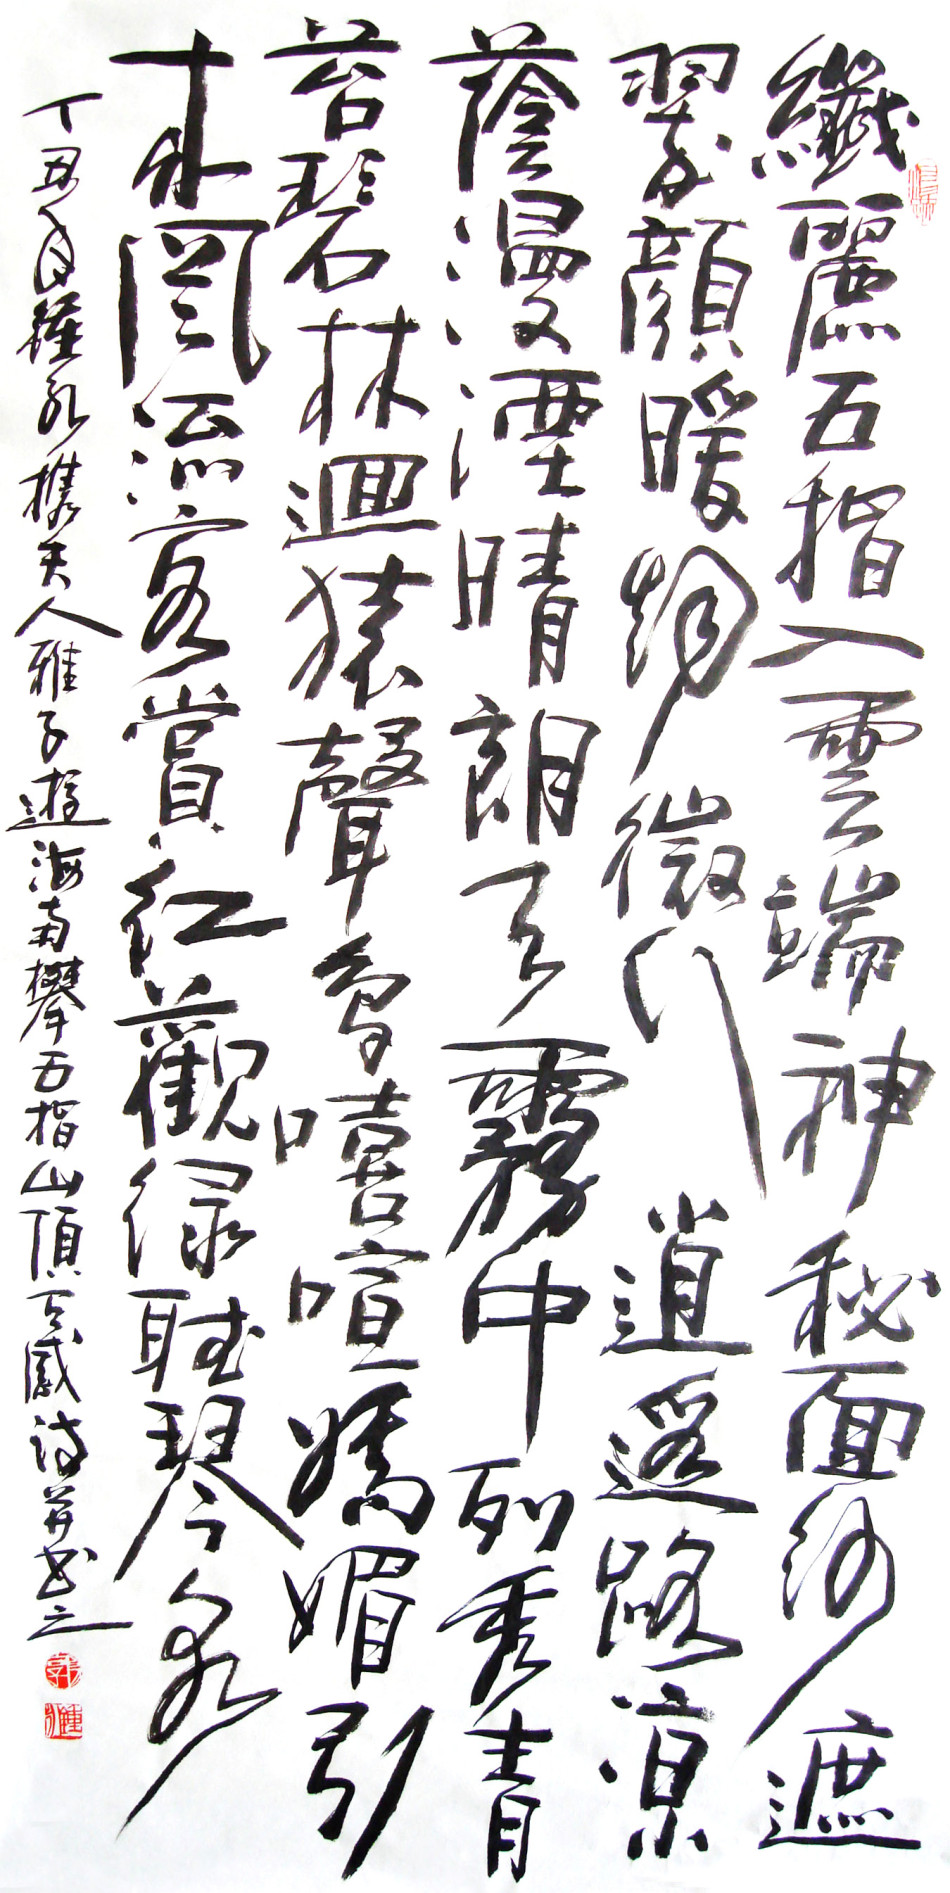 纖麗五指入雲端神秘面紗遮
翠顏暖陽微風逍遙路凉
蔭漫湮晴朗天霧中列秀青
苔碧林迴猿聲鳥嘻喧嬌媚引
來風流客賞紅觀綠聽琴泉
丁丑年鍾永携夫人雅子遊海南攀五指山頂有感詩并書之